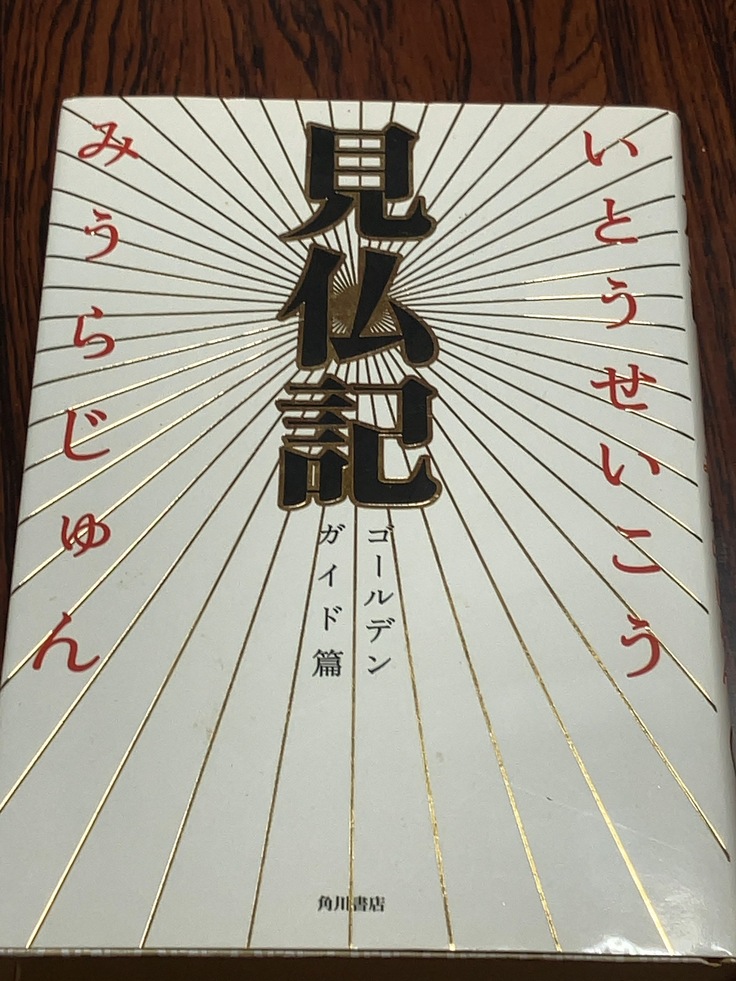 いとうせいこう
見仏記
ゴールデン
ガイド篇
みうらじゅん
角川書店